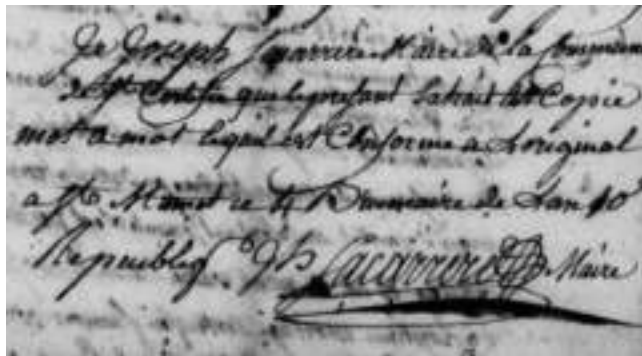 Je Joseph Lacarrière Maire de la Commune
de St certifie que le present Extrait est Copié
mot a mot lequel est Conforme a Loriginal
a St Mamet ce Brumaire de Lan 10e
Republiq. Jh Lacarriere Maire